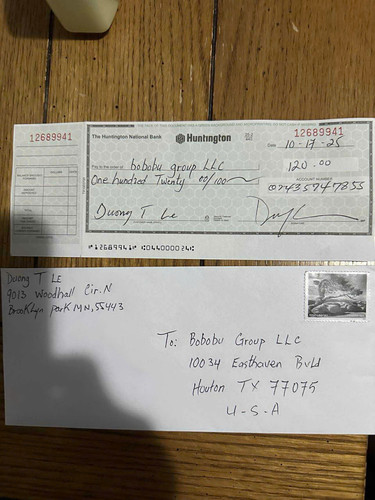 12689941
DOLLARS
CENTS
The Huntington National Bank
Huntington
12689941
Date 10-17-25
Pay to the order of bobobu group LLC
120.00
One hundred Twenty 00/100
ACCOUNT NUMBER
02435947855
Duong T Le
⑈12689941⑈ ⑆044000024⑆
Duong T LE
9013 Woodhall Cir. N
Brooklyn park MN, 55443
To: Bobobu Group LLC
10034 Easthaven Bvld
Houton TX 77075
U-S-A